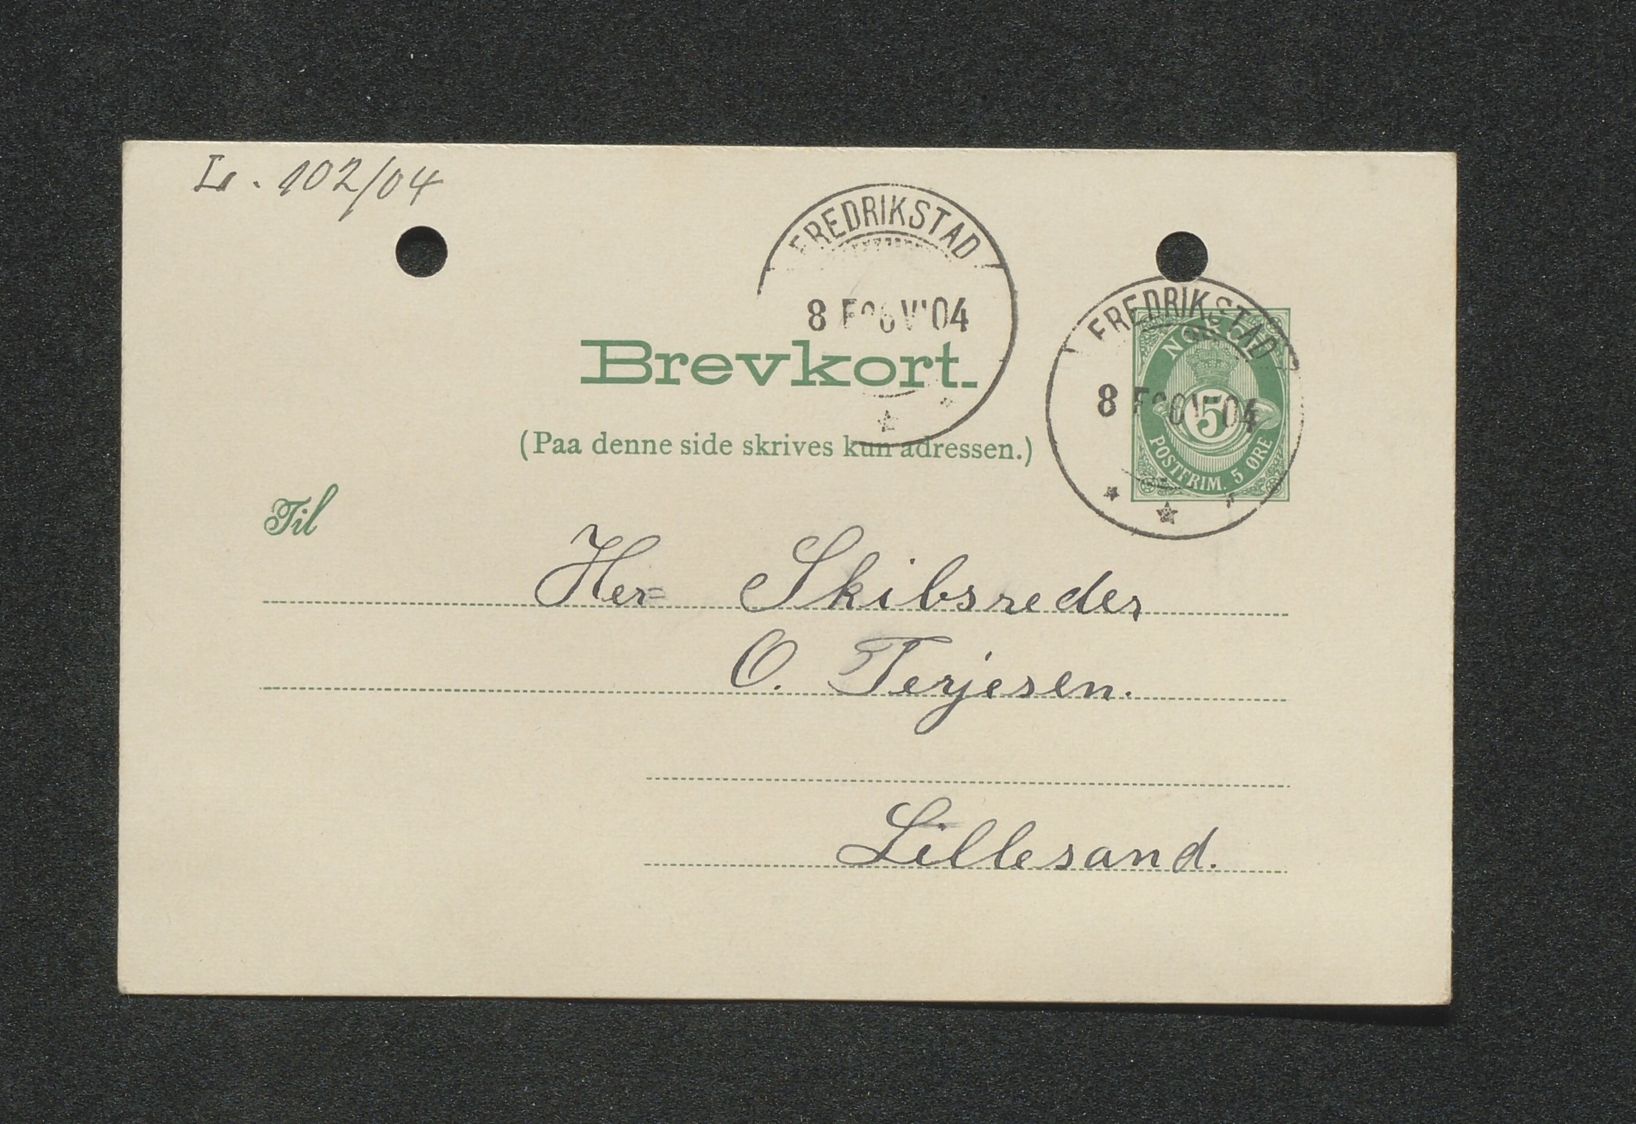 L. 102/04
FREDRIKSTAD
8 04
Brevkort.
(Paa denne side skrives kun adressen.)
FREDRIKSTAD
8 04
NORGE
5
POSTFRIM. 5 ØRE
Til
Herr Skibsreder
O. Terjesen.
Lillesand.